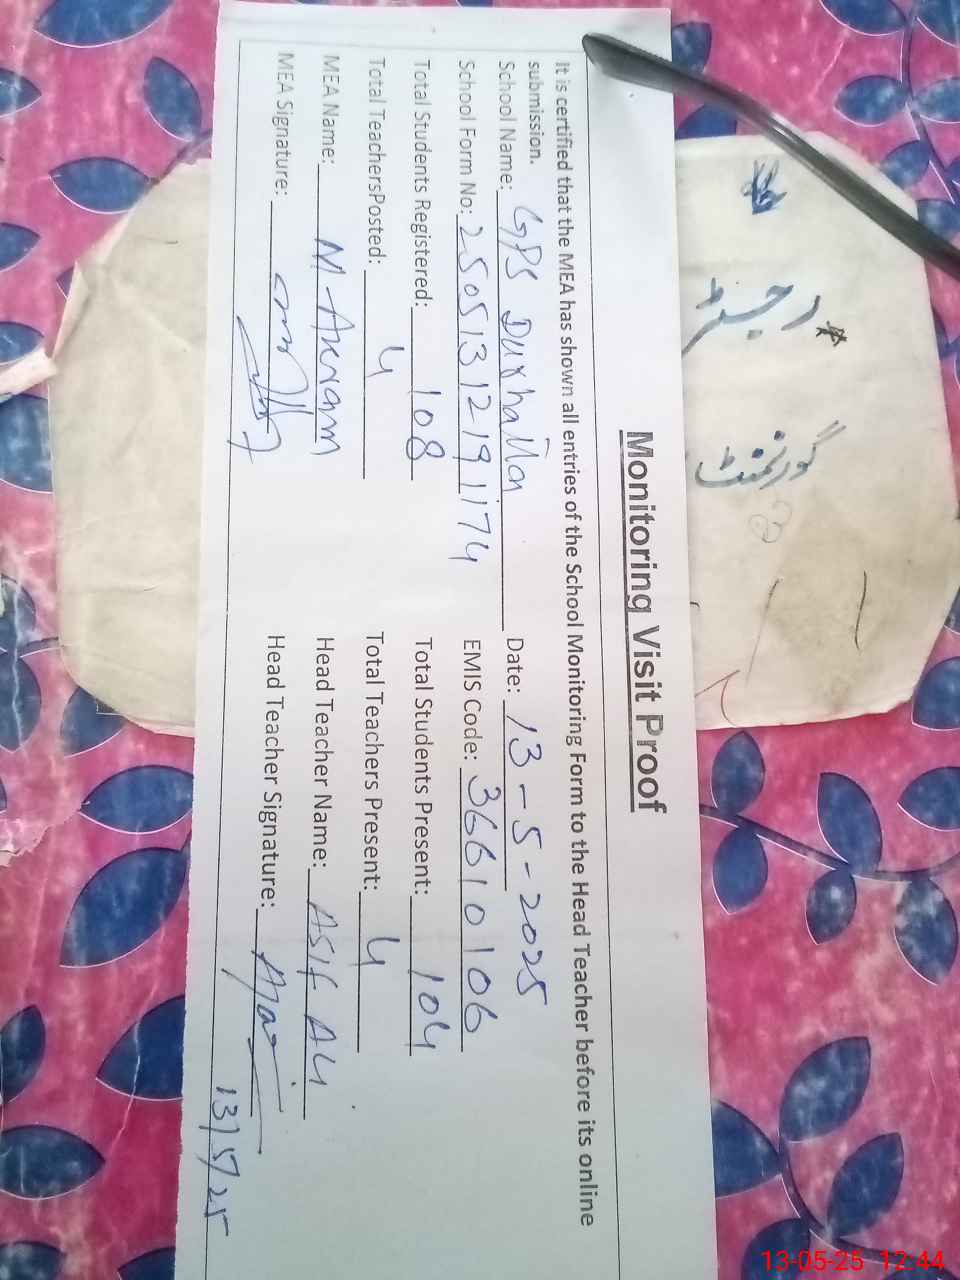 Monitoring Visit Proof
It is certified that the MEA has shown all entries of the School Monitoring Form to the Head Teacher before its online
submission.
School Name: GPS Durhailla Date: 13-5-2025
School Form No: 2505131219 1174 EMIS Code: 36610106
Total Students Registered: 108 Total Students Present: 104
Total TeachersPosted: 4 Total Teachers Present: 4
MEA Name: M Akram Head Teacher Name: ASIF Ali
MEA Signature: Head Teacher Signature:
13/5/25
رجسٹر
گورنمنٹ
13-05-25 12:44